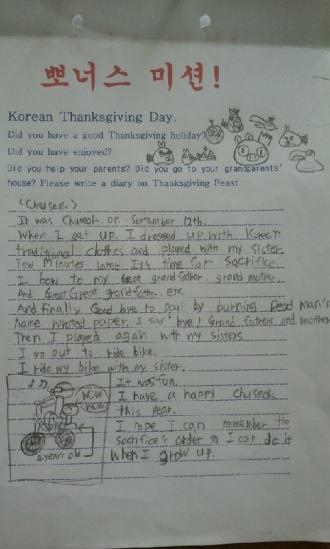 뽀너스 미션!
Korean Thanksgiving Day.
Did you have a good Thanksgiving holiday?
Did you have enjoyed?
Did you help your parents? Did you go to your grandparents'
house? Please write a diary on Thanksgiving Feast
<Chuseok>
It was Chuseok on September 12th.
When I get up. I dressed up with Korean
traditional clothes and played with my sister.
Few Minutes later It's time for Sacrifice.
I bow to my Great grand father, grand mother,
And Great Great grand father, etc.
And finally Good bye to soul by burning Dead man's
name wroted paper, I say bye! Grand Fathers and mother
Then I played again with my sisters
I go out to ride bike.
I ride my bike with my sister.
It was fun.
I have a happy chuseok
this year.
I hope I can remember the
Sacrifice's order so I can do it
When I grow up.
WOW
WOW
years old